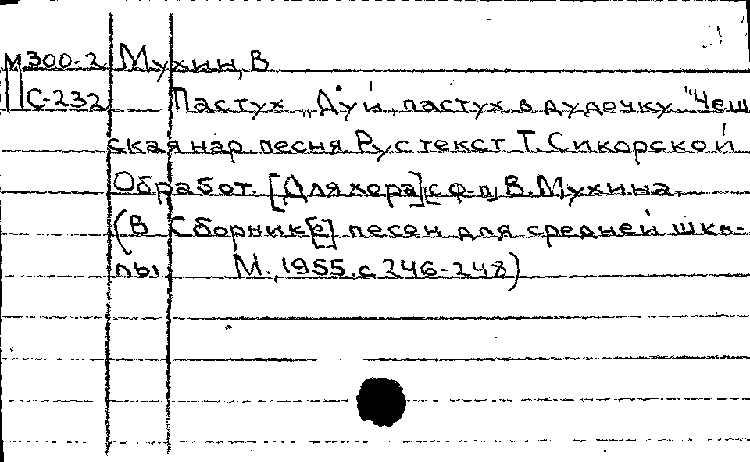 М300-2 Мухин, В
С-232 Пастух „Дуй, пастух в дудочку" Чеш
ская нар. песня Рус текст Т. Сикорской
Обработ. [Для хора] с ф-п, В. Мухина.
(В Сборник[е] песен для средней шко-
лы. М., 1955, с 246-248)